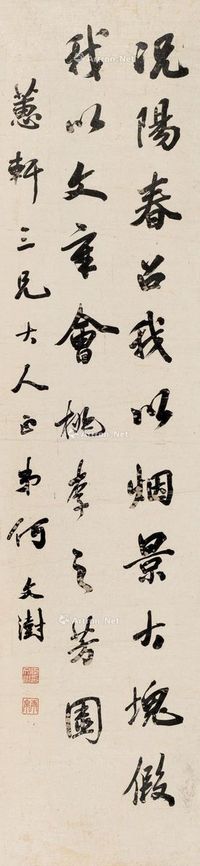 況陽春召我以烟景大塊假
我以文章會桃李之芳園
蕙軒三兄大人正 弟何文澍